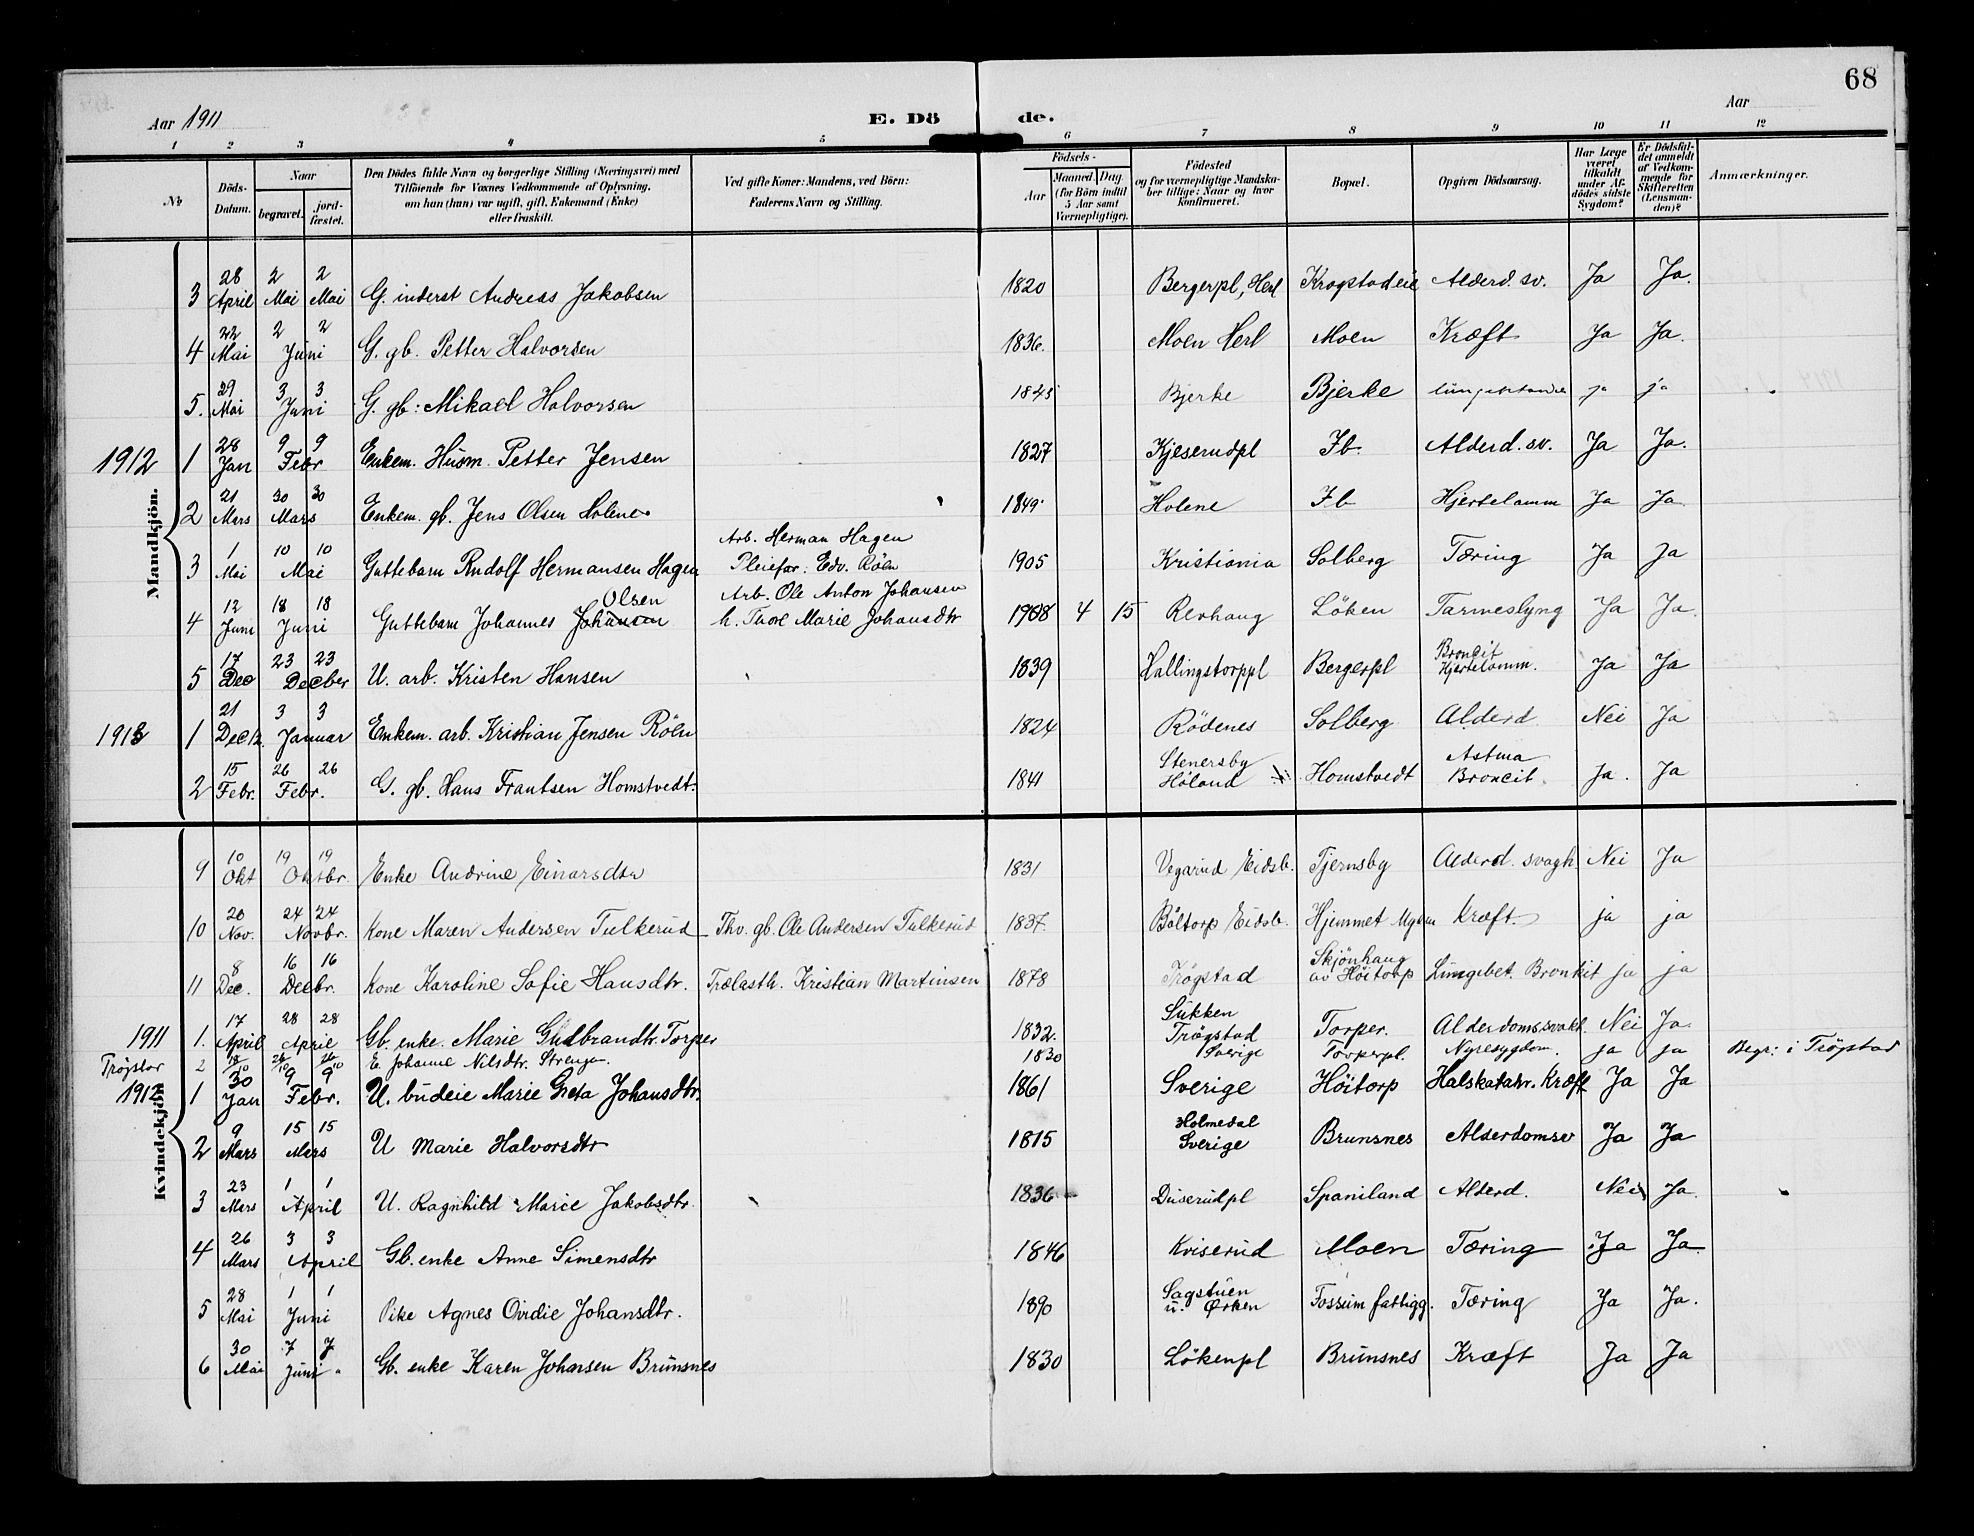 68
Aar 1911
E. Dö de.
Aar
1 2 3 4 5 6 7 8 9 10 11 12
No
Döds-Datum.
Naar
begravet.
jord-fæstet.
Den Dödes fulde Navn og borgerlige Stilling (Næringsvei) med
Tilföiende for Voxnes Vedkommende af Oplysning,
om han (hun) var ugift, gift, Enkemand (Enke)
eller fraskilt.
Ved gifte Koner: Mandens, ved Börn:
Faderens Navn og Stilling.
Födsels-
Aar
Maaned. Dag.
(for Börn indtil
5 Aar samt
Værnepligtige).
Födested
og for værnepligtige Mandska-
ber tillige: Naar og hvor
Konfirmeret.
Bopæl.
Opgiven Dödsaarsag.
Har Læge
været
tilkaldt
under Af-
dödes sidste
Sygdom?
Er Dödsfal-
det anmeldt
af Vedkom-
mende for
Skifteretten
(Lensman-
den)?
Anmærkninger.
Mandkjön.
3 28 April 2 Mai 2 Mai G. inderst Andreas Jakobsen 1820 Bergerpl, Herl Krogstadeie Alderd. sv. Ja Ja.
4 22 Mai 2 2 Juni G. gb. Petter Halvorsen 1836. Moen Herl Moen Kræft Ja Ja.
5. 29 Mai 3 3 Juni G. gb: Mikael Halvorsen 1845 Bjerke Bjerke ja ja
1912 1 28 Jan 9 9 Febr Enkem. Husm. Petter Jensen 1827 Kjeserudpl Ib. Alderd. sv. Ja Ja.
2 21 Mars 30 30 Mars Enkem. gb. Jens Olsen Holene 1849. Holene Ib Hjertelamm Ja Ja.
3 1 Mai 10 10 Mai Guttebarn Rudolf Hermansen Hagen Arb. Herman Hagen Pleiefar: Edv. Röln 1905 Kristiania Solberg Tæring Ja Ja
4 12 Juni 18 18 Juni Guttebarn Johannes Johansen Olsen Arb. Ole Anton Johansen h. Thore Marie Johansdtr 1908 4 15 Revhaug Löken Tarmeslyng Ja Ja.
5 17 Dec 23 23 Decber U. arb. Kristen Hansen 1839 Hallingstorppl Bergerpl Broncit Hjertelamm. Ja Ja
1913 1 21 Dec 12. 3 3 Januar Enkem. arb. Kristian Jensen Röln 1824 Rödenes Solberg Alderd Nei Ja
2 15 Febr. 26 26 Febr. G. gb. Hans Frantsen Homstvedt. 1841 Stenersby Höland Homstvedt Astma Broncit. Ja. Ja
Kvindekjön
9 10 Okt 19 19 Oktbr. Enke Andrine Einarsdtr 1831 Vegarud Eidsb. Tjernsby Alderd. svagh. Nei Ja
10 20 Nov. 24 24 Novbr. Kone Maren Andersen Tulkerud Thv. gb. Ole Andersen Tulkerud 1837. Böltorp Eidsb. Hjemmet Mysen Kræft. ja ja
11 8 Dec. 16 16 Decbr. Kone Karoline Sofie Hansdtr. Trælasth. Kristian Martinsen 1878 Trögstad Skjönhaug av Höitorp Lungebet. Bronkit ja ja
1911 1. 17 April 28 28 April Gb. enke. Marie Gulbrandtr. Torper 1832. Sukken Trögstad Torper. Alderdomssvakh. Nei Ja.
Trögstad 2 18/10 26/10 26/10 E. Johanne Nilsdtr. Strengen 1830 Sverige Torperpl. Nyresygdom. ja ja Begr: i Trögstad
1912 1 30 Jan 9 9 Febr. U. budeie Marie Greta Johansdtr. 1861 Sverige Höitorp Halskatahr. Kræft Ja Ja
2 9 Mars 15 15 Mars U Marie Halvorsdtr 1815 Holmedal Sverige Brunsnes Alderdomsv Ja Ja
3 23 Mars 1 1 April U. Ragnhild Marie Jakobsdtr. 1836 Duserudpl Spaniland Alderd. Nei Ja.
4 26 Mars 3 3 April Gb. enke Anne Simensdtr 1846 Kviserud Moen Tæring Ja Ja
5 28 Mai 1 1 Juni Pike Agnes Ovidie Johansdtr. 1890 Sagstuen u. Örken Fossum fattigg. Tæring Ja Ja.
6 30 Mai 7 7 Juni Gb. enke Karen Johansen Brunsnes 1830 Lökenpl Brunsnes Kræft Ja Ja